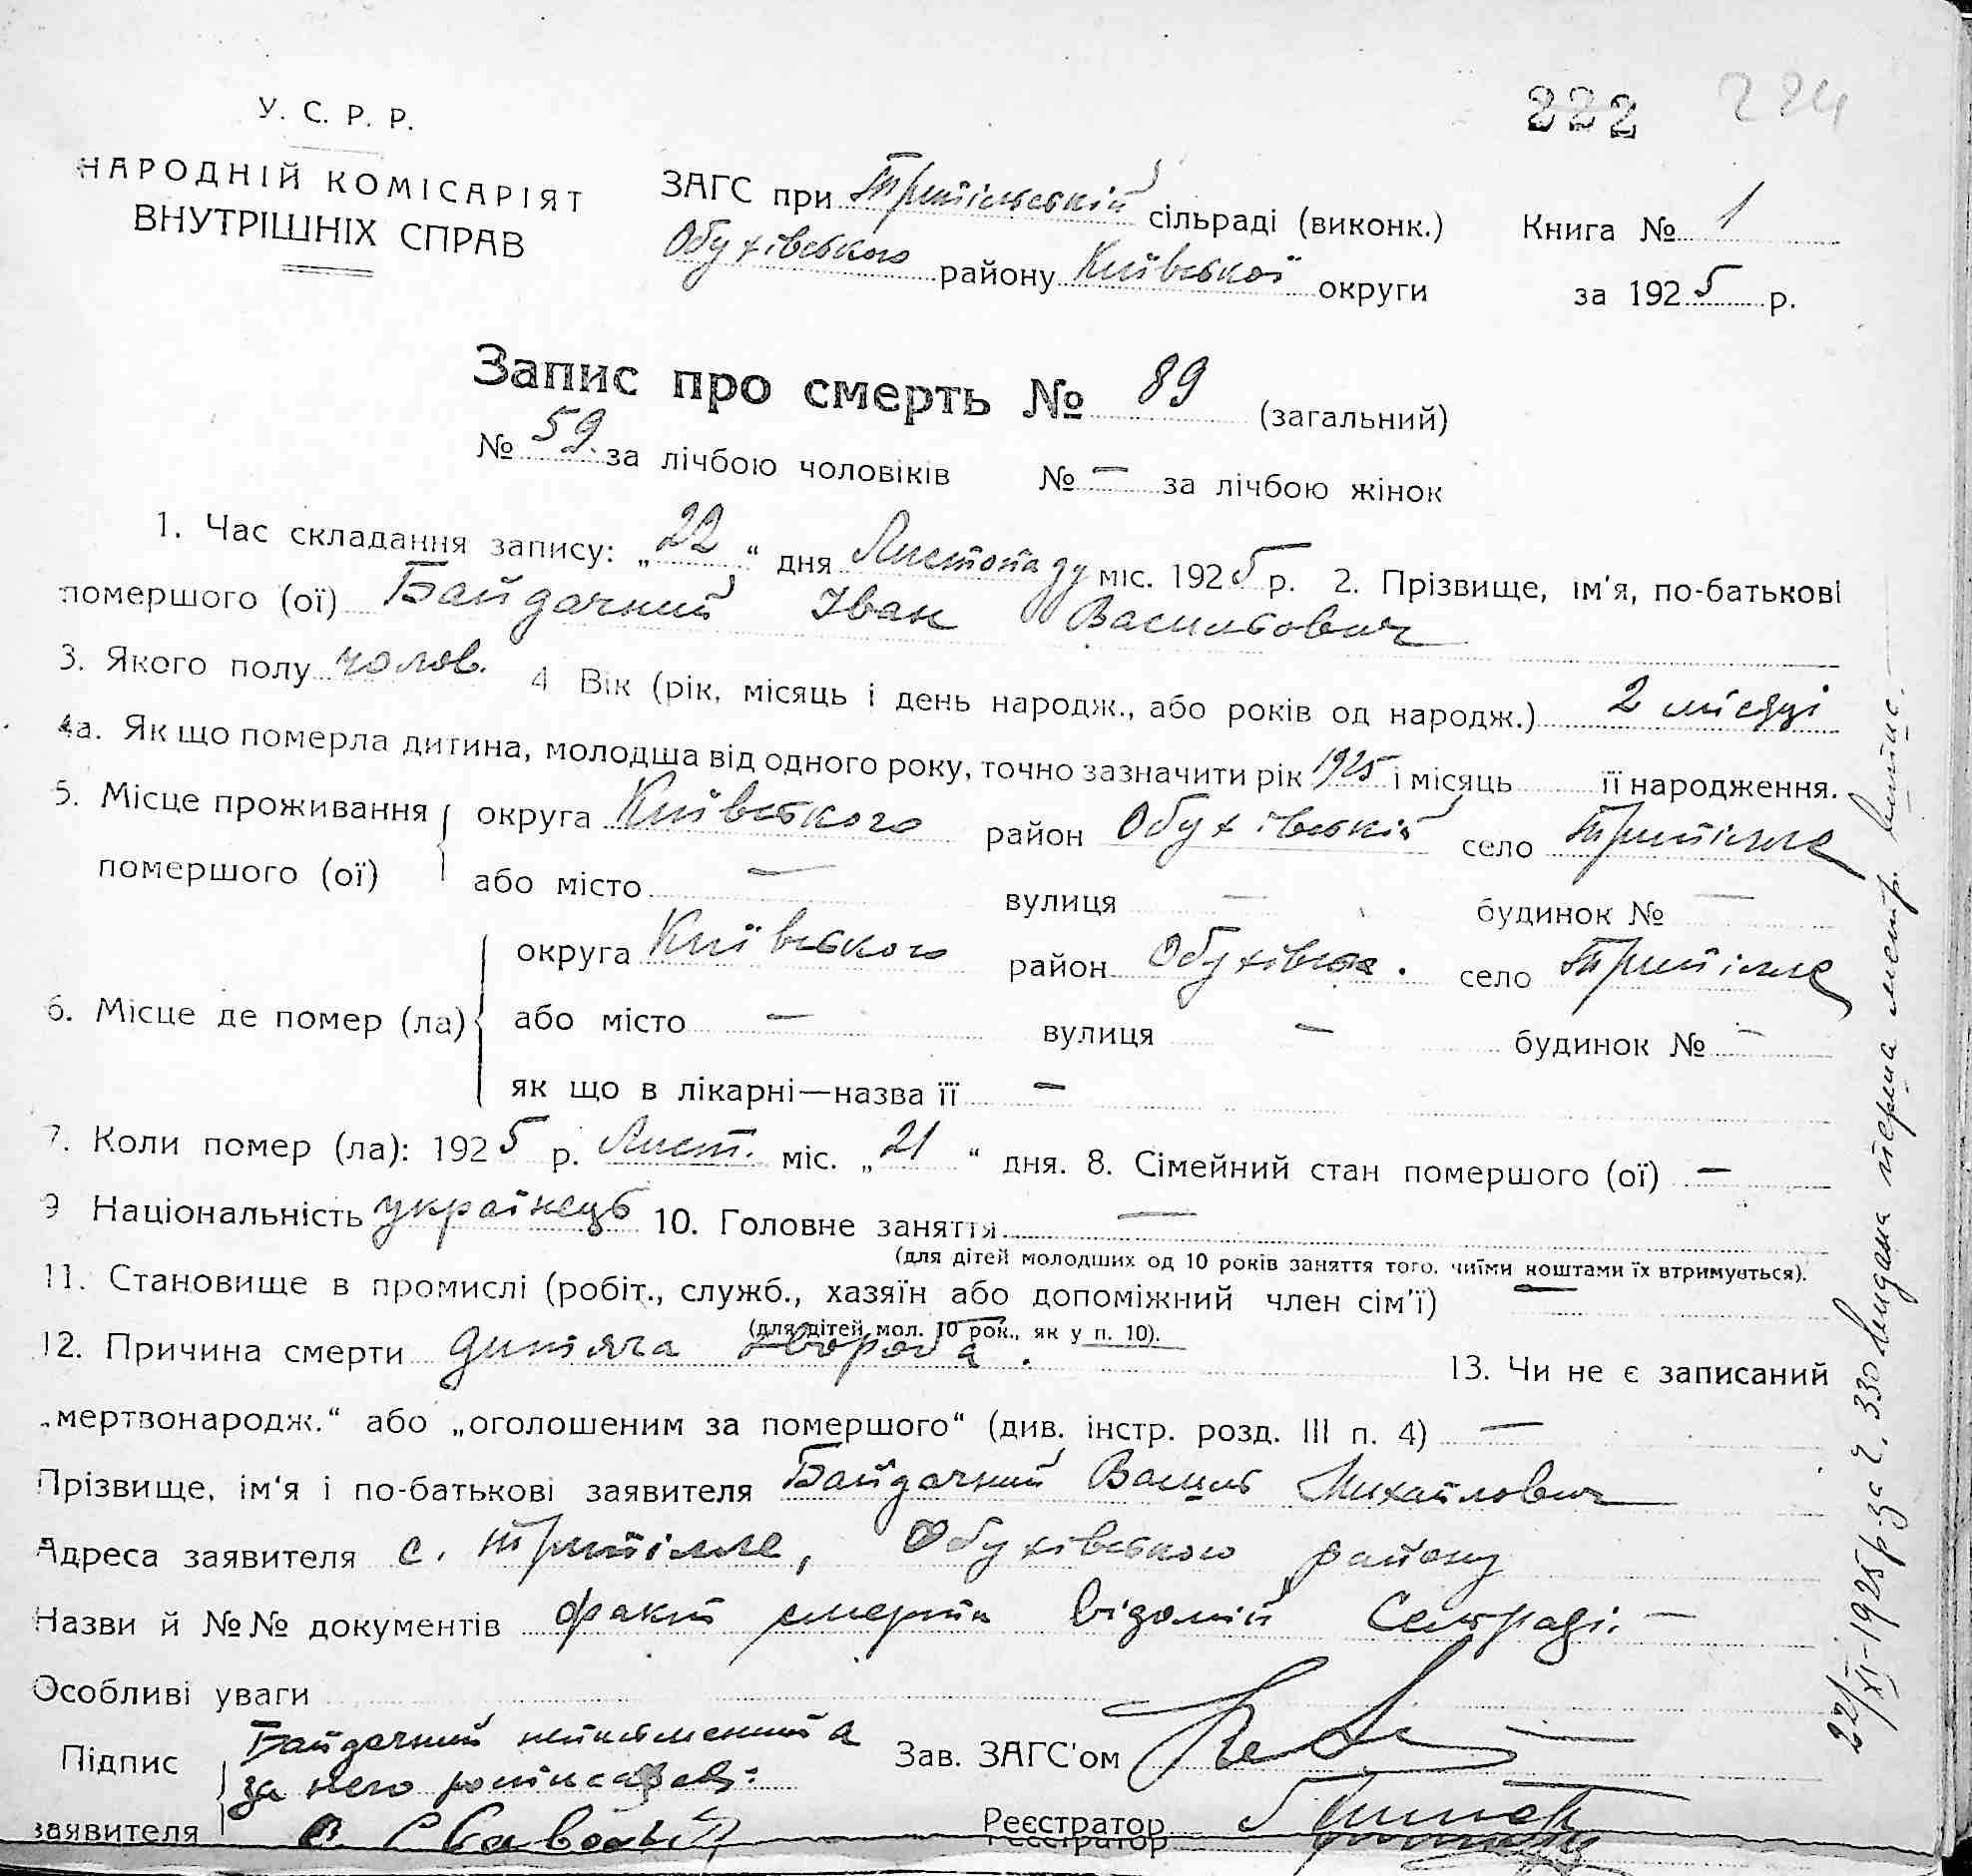 222 224
У. С. Р. Р.
НАРОДНІЙ КОМІСАРІЯТ
ВНУТРІШНІХ СПРАВ
ЗАГС при Трипільській сільраді (виконк.)
Обухівського району Київської округи
Книга № 1
за 1925 р.
Запис про смерть № 89 (загальний)
№ 59. за лічбою чоловіків № — за лічбою жінок
1. Час складання запису: „22“ дня Листопаду міс. 1925 р. 2. Прізвище, ім'я, по-батькові
помершого (ої) Байдачний Іван Васильович
3. Якого полу чолов. 4 Вік (рік, місяць і день народж., або років од народж.) 2 місяці
4а. Як що померла дитина, молодша від одного року, точно зазначити рік 1925 і місяць її народження.
5. Місце проживання округа Київського район Обухівській село Трипілля
помершого (ої) або місто — вулиця — будинок № —
округа Київського район Обухівськ. село Трипілля
6. Місце де помер (ла) або місто — вулиця — будинок № —
як що в лікарні—назва її —
7. Коли помер (ла): 1925 р. Лист. міс. „21“ дня. 8. Сімейний стан помершого (ої) —
9 Національність українець 10. Головне заняття —
(для дітей молодших од 10 років заняття того, чиїми коштами їх втримується).
11. Становище в промислі (робіт., служб., хазяїн або допоміжний член сім'ї) —
(для дітей мол. 10 рок., як у п. 10).
12. Причина смерти дитяча хвороба. 13. Чи не є записаний
„мертвонародж.“ або „оголошеним за помершого“ (див. інстр. розд. III п. 4) —
Прізвище, ім'я і по-батькові заявителя Байдачний Василь Михайлович
Адреса заявителя с. Трипілля, Обухівського району
Назви й №№ документів факт смерти відомий Сельраді. —
Особливі уваги
Підпис Байдачний неписьменний а Зав. ЗАГС'ом
за него розписався:
заявителя Реєстратор
Реєстратор
22/XI-1925 р. за ч. 330 Видана перша метр. випис. —